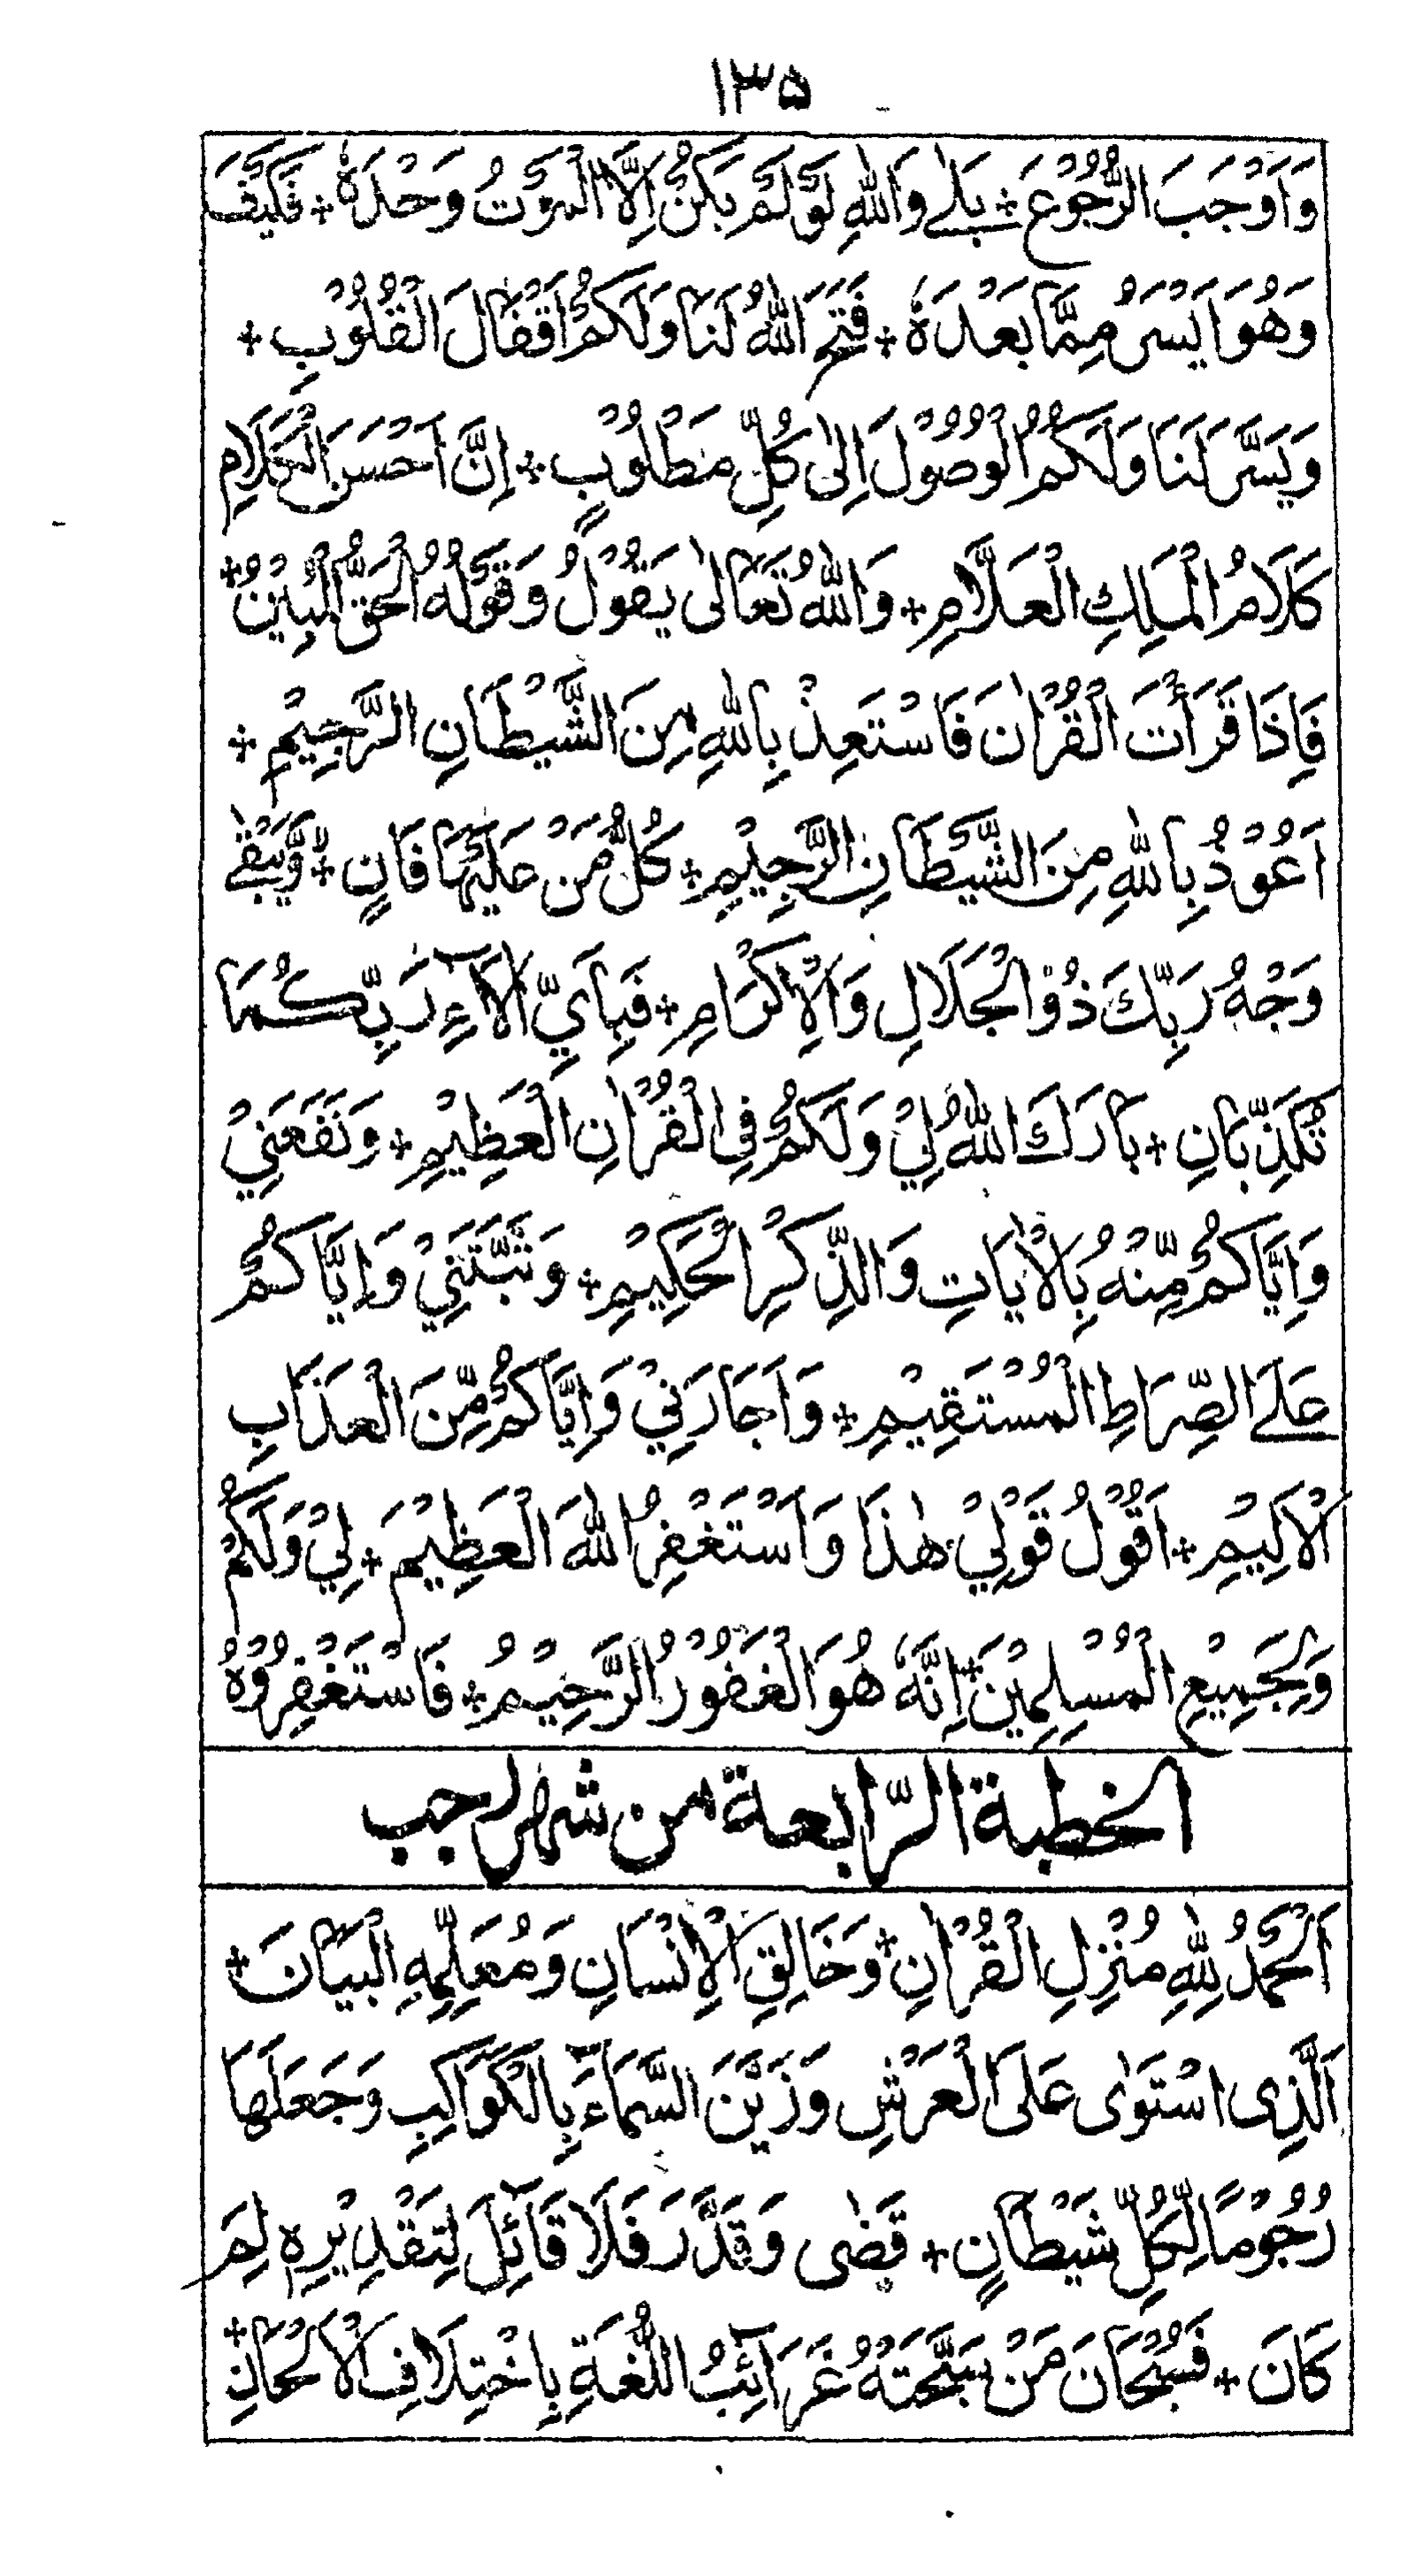 ١٣٥
وَاَوْجَبَ الرُّجُوْعَ + بَلٰے وَاللّٰهِ لَوْ لَمْ يَكُنْ اِلَّا الْمَوْتُ وَحْدَهٗ + فَكَيْفَ
وَهُوَ اَيْسَرُ مِمَّا بَعْدَهٗ + فَتَحَ اللّٰهُ لَنَا وَلَكُمْ اَقْفَالَ الْقُلُوْبِ +
وَيَسَّرَ لَنَا وَلَكُمُ الْوُصُوْلَ اِلٰى كُلِّ مَطْلُوْبٍ + اِنَّ اَحْسَنَ الْكَلَامِ
كَلَامُ الْمَلِكِ الْعَلَّامِ + وَاللّٰهُ تَعَالٰى يَقُوْلُ وَقَوْلُهُ الْحَقُّ الْمُبِيْنُ +
فَاِذَا قَرَأْتَ الْقُرْاٰنَ فَاسْتَعِذْ بِاللّٰهِ مِنَ الشَّيْطَانِ الرَّجِيْمِ +
اَعُوْذُ بِاللّٰهِ مِنَ الشَّيْطَانِ الرَّجِيْمِ + كُلُّ مَنْ عَلَيْهَا فَانٍ + وَّيَبْقٰے
وَجْهُ رَبِّكَ ذُو الْجَلَالِ وَالْاِكْرَامِ + فَبِاَيِّ اٰلَآءِ رَبِّكُمَا
تُكَذِّبَانِ + بَارَكَ اللّٰهُ لِيْ وَلَكُمْ فِى الْقُرْاٰنِ الْعَظِيْمِ + وَنَفَعَنِيْ
وَاِيَّاكُمْ مِّنْهُ بِالْاٰيَاتِ وَالذِّكْرِ الْحَكِيْمِ + وَثَبَّتَنِيْ وَاِيَّاكُمْ
عَلَے الصِّرَاطِ الْمُسْتَقِيْمِ + وَاَجَارَنِيْ وَاِيَّاكُمْ مِّنَ الْعَذَابِ
الْاَلِيْمِ + اَقُوْلُ قَوْلِيْ هٰذَا وَاَسْتَغْفِرُ اللّٰهَ الْعَظِيْمَ + لِيْ وَلَكُمْ
وَلِجَمِيْعِ الْمُسْلِمِيْنَ + اِنَّهٗ هُوَ الْغَفُوْرُ الرَّحِيْمُ + فَاسْتَغْفِرُوْهُ
الخطبة الرّابعة من شهر رجب
اَلْحَمْدُ لِلّٰهِ مُنْزِلِ الْقُرْاٰنِ + وَخَالِقِ الْاِنْسَانِ وَمُعَلِّمِهِ الْبَيَانَ +
اَلَّذِى اسْتَوٰى عَلَى الْعَرْشِ وَزَيَّنَ السَّمَآءَ بِالْكَوَاكِبِ وَجَعَلَهَا
رُجُوْمًا لِّكُلِّ شَيْطَانٍ + قَضٰى وَقَدَّرَ فَلَا قَآئِلَ لِتَقْدِيْرِهٖ لِمَ
كَانَ + فَسُبْحَانَ مَنْ سَبَّحَتْهُ غَرَآئِبُ اللُّغَةِ بِاخْتِلَافِ الْاَلْحَانِ +